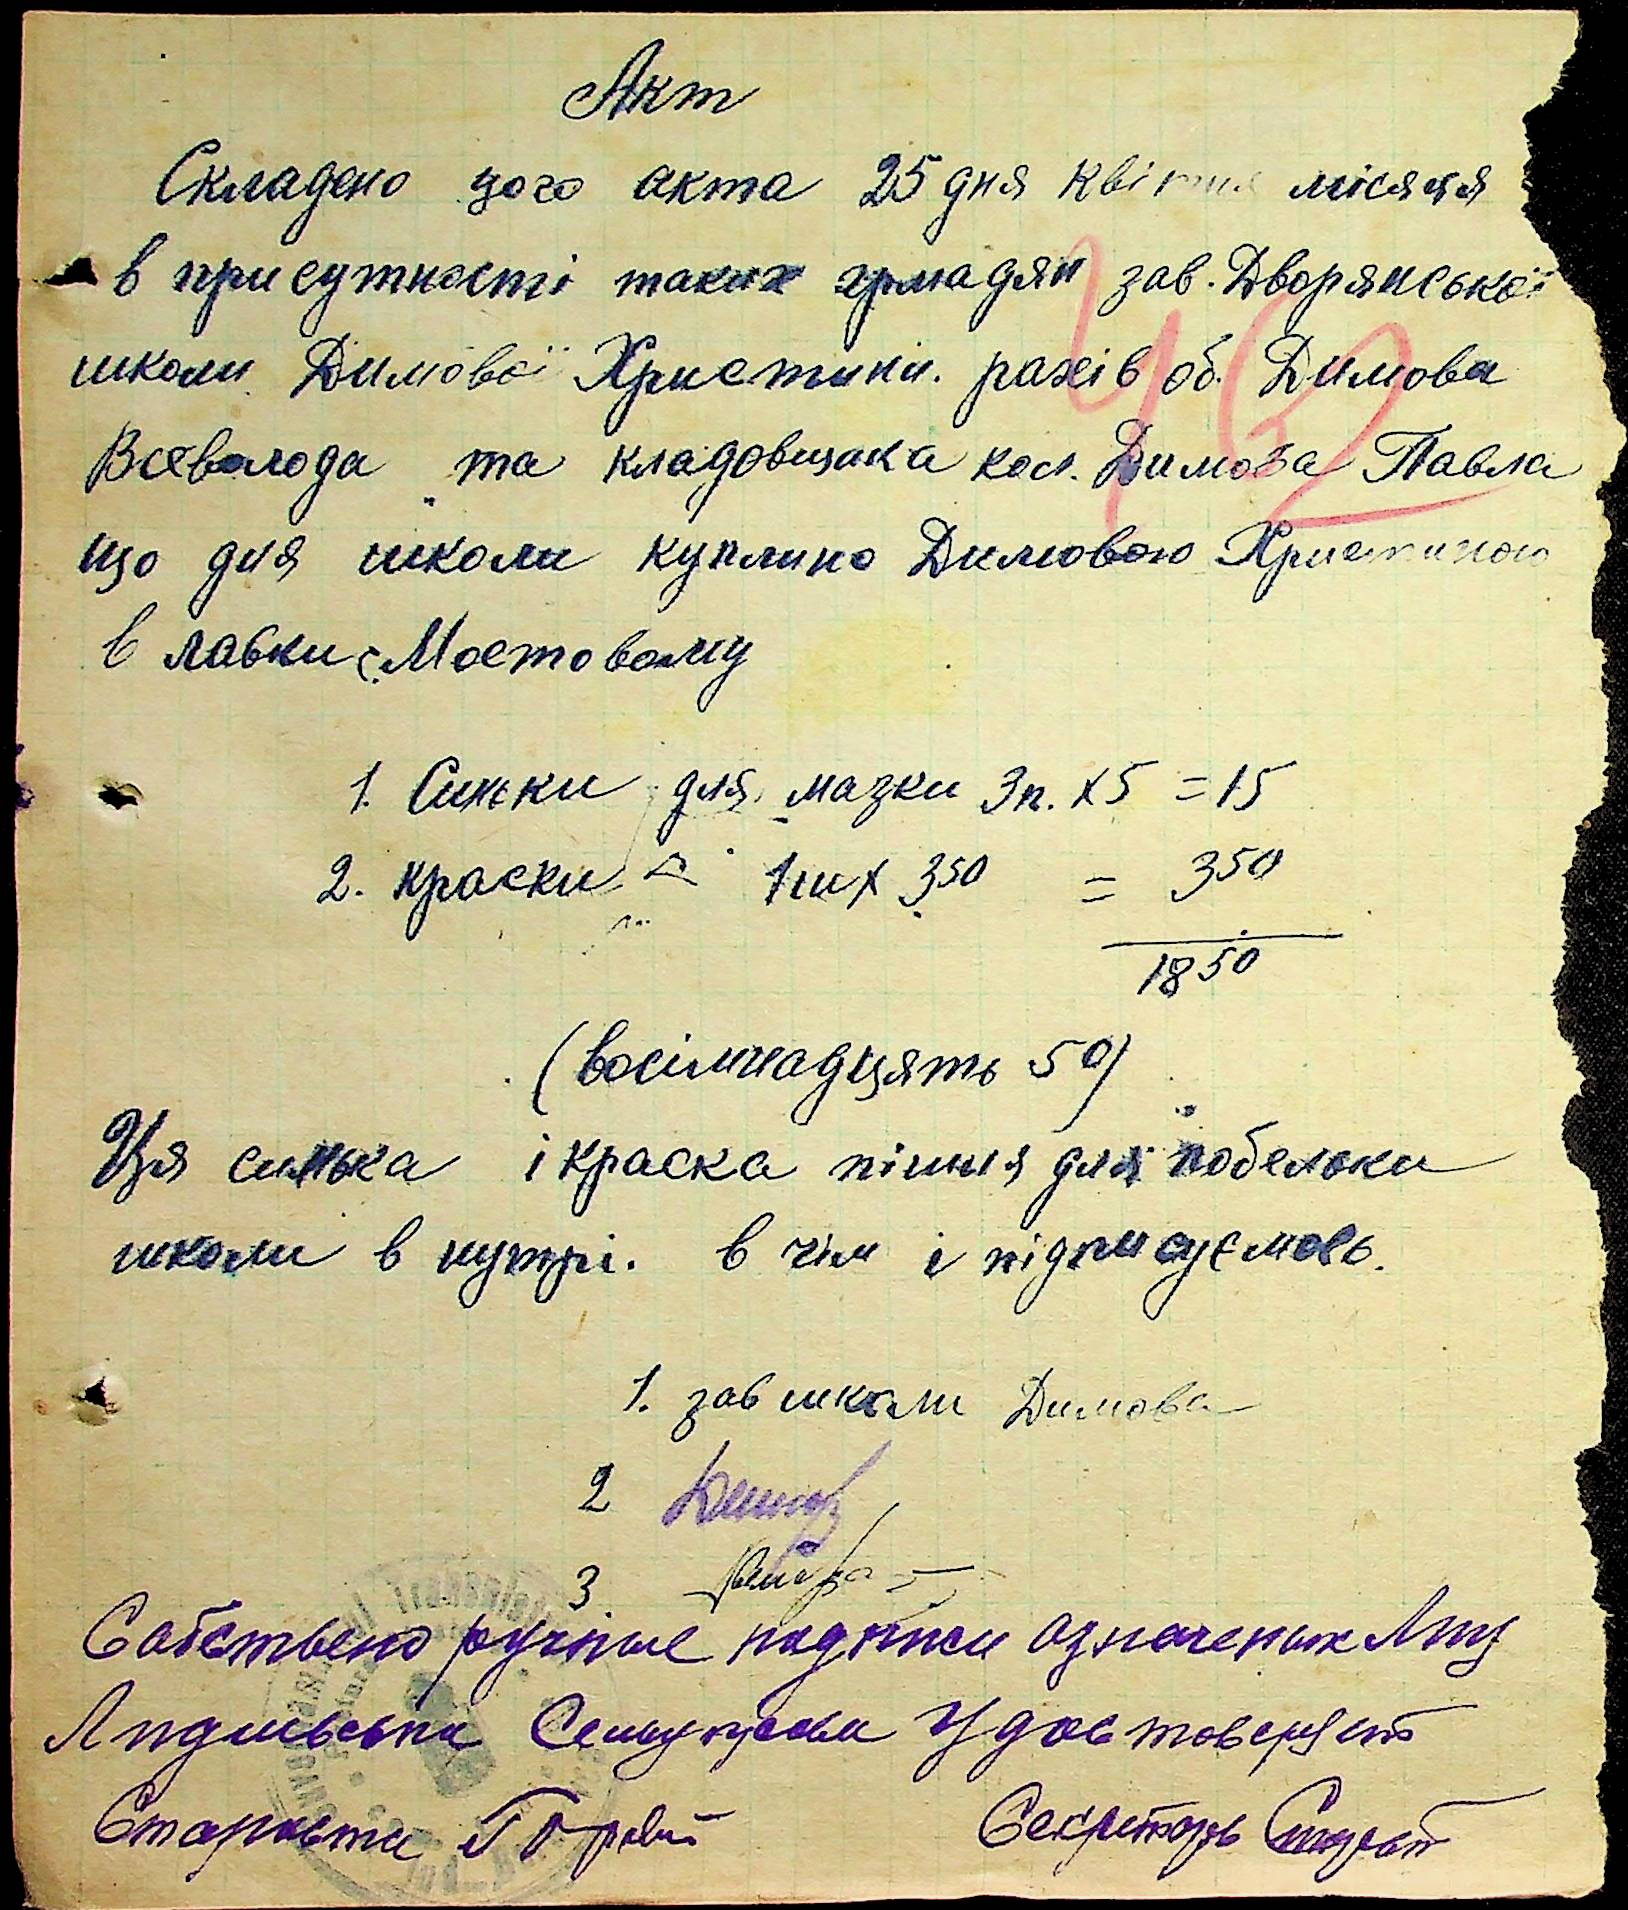 Акт
Складено цого акта 25 дня квітня місяця
в присутності таких грмадян зав. Дворянської
школи Димової Христини. рахів об. Димова
Всеволода та кладовщика кол. Димова Павла
що для школи куплино Димовою Христиною
в лавки с. Мостовому
42
1. Синьки для мазки 3п. х 5 = 15
2. краски 1ш х 3 50 = 3 50
18 50
(восімнадцять 50)
Ця синька і краска пішля для побелки
школи в нутрі. в чім і підписуємось.
1. зав школи Димова
2
3.
Собствено ручные подписи означеных Лиц
Удостоверяет
Староста Секретарь